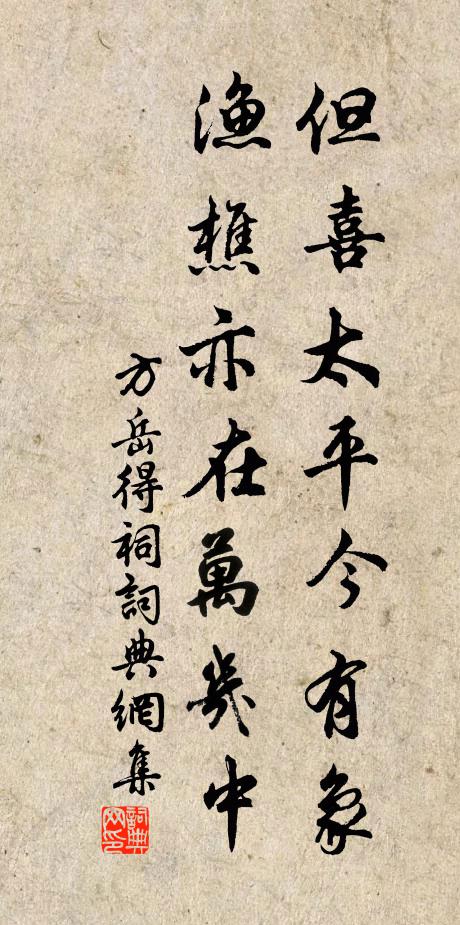 但喜太平今有象
漁樵亦在萬幾中
方岳得祠詞典網集
詞典网印